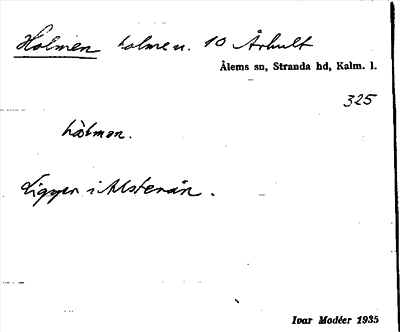 Holmen holmen. 10 Århult
Ålems sn, Stranda hd, Kalm. l.
325
hòlmən.
Ligger i Alsterån.
Ivar Modéer 1935